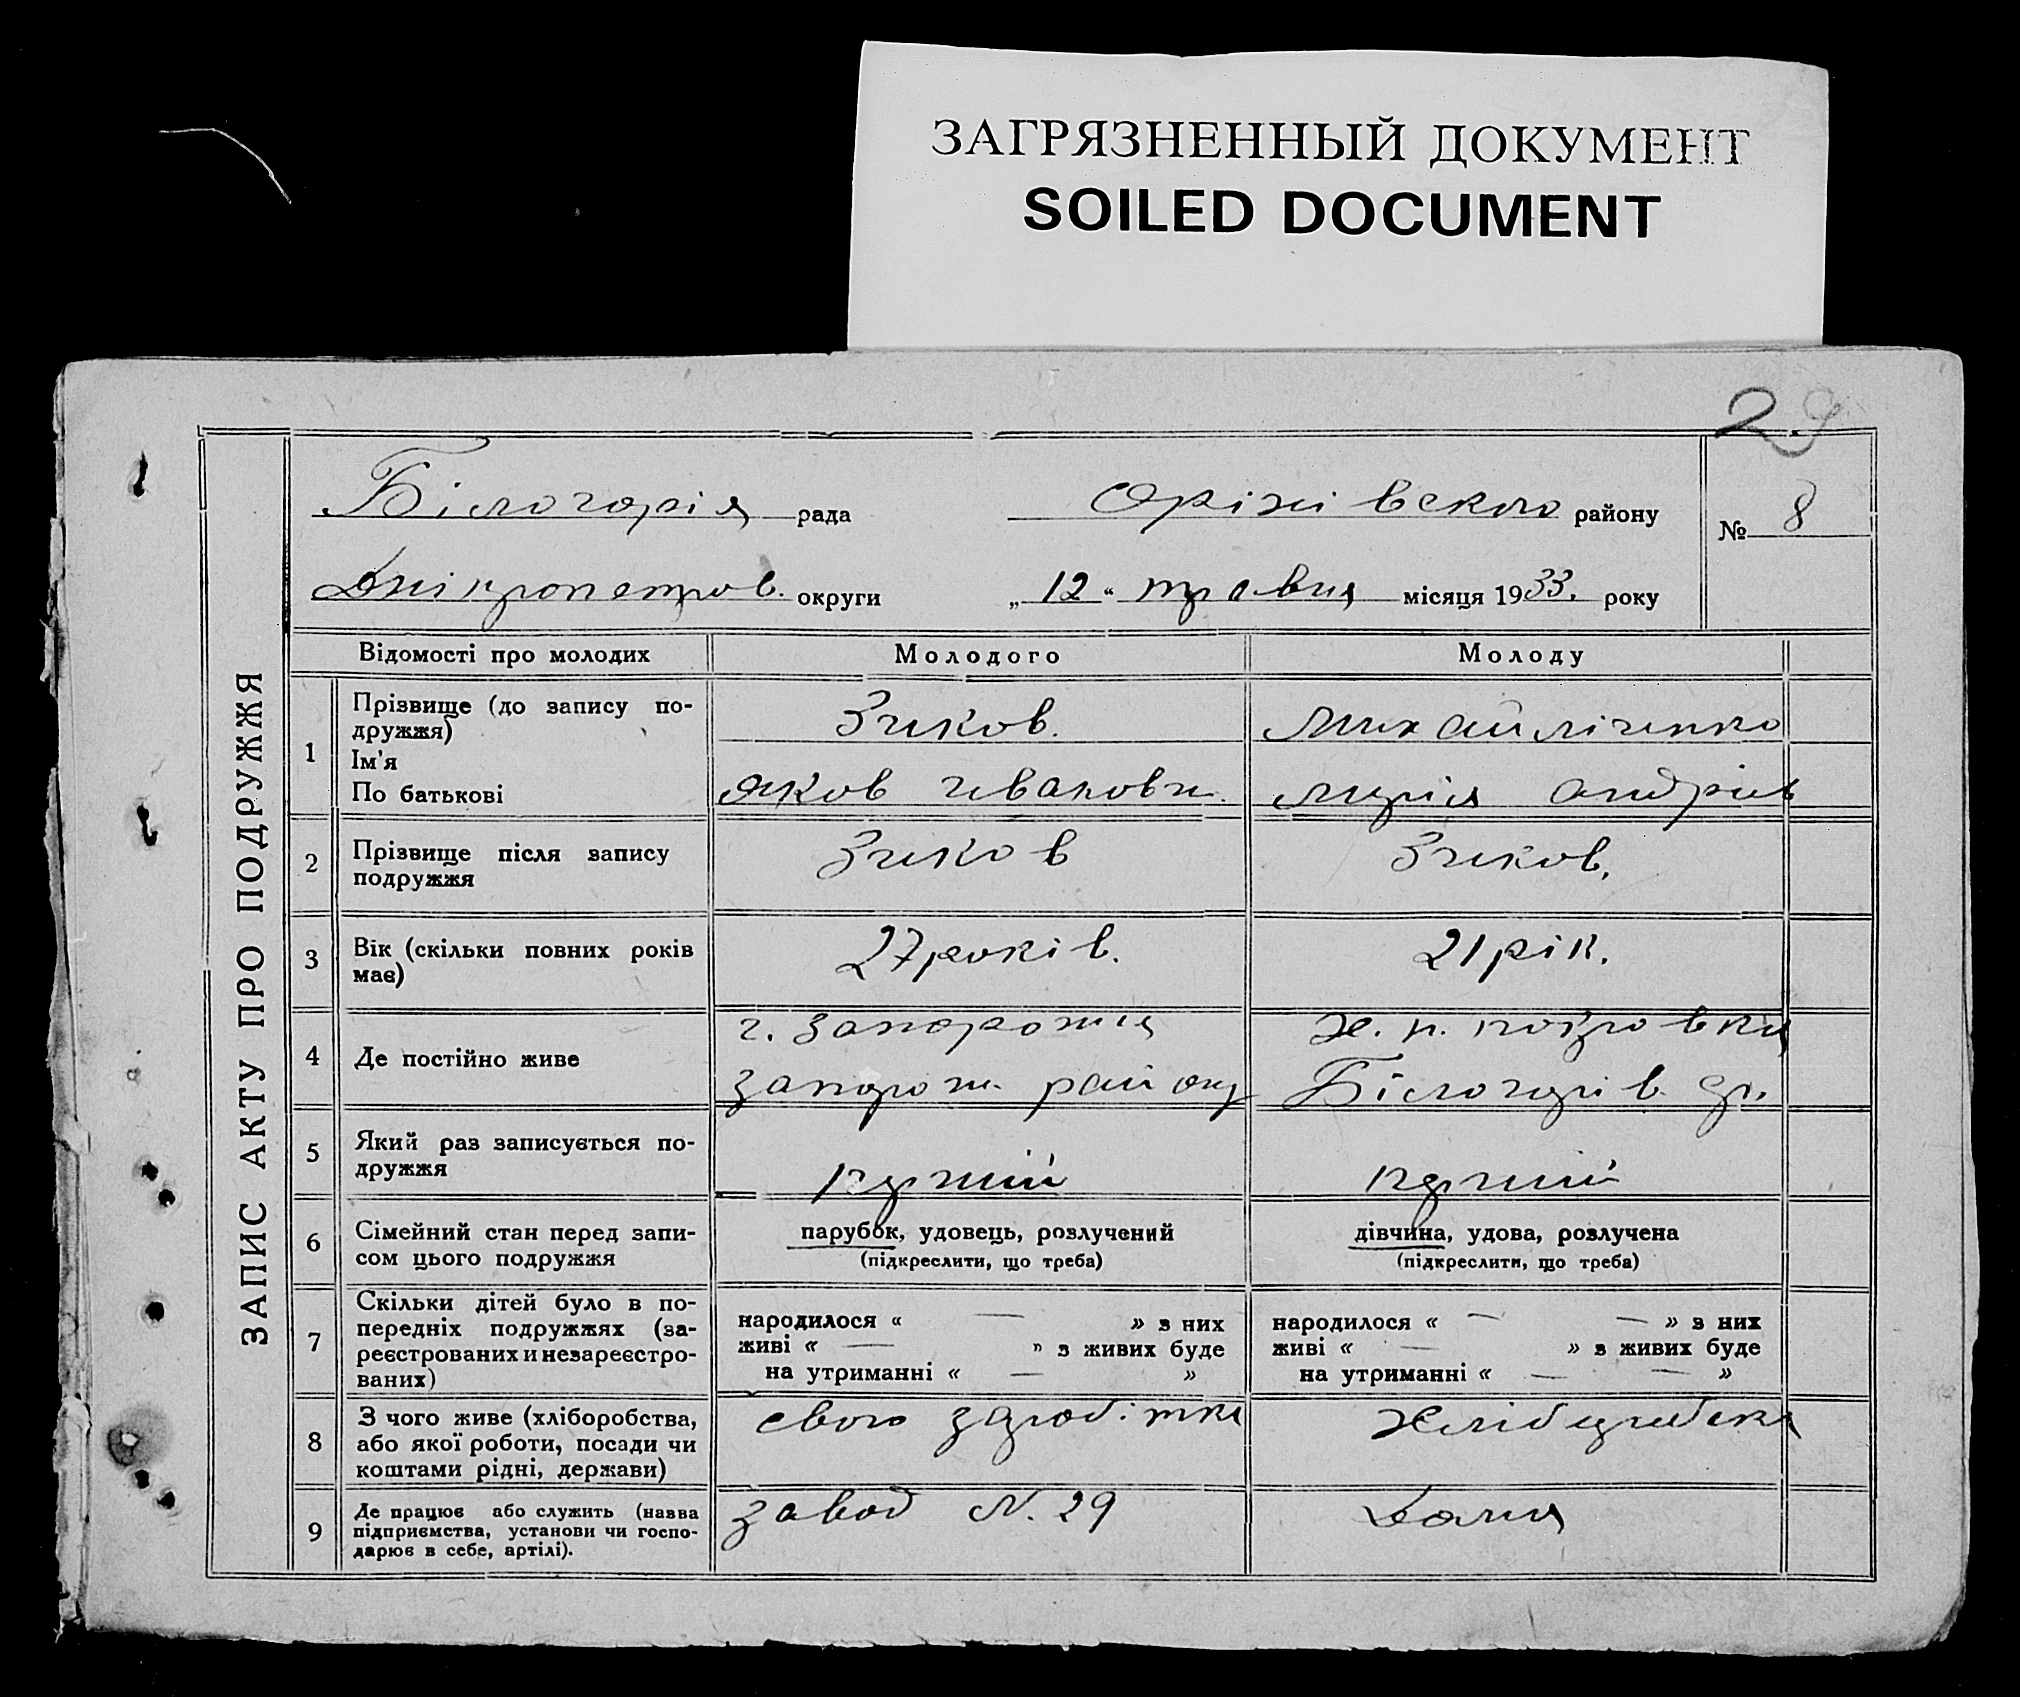 ЗАГРЯЗНЕННЫЙ ДОКУМЕНТ
SOILED DOCUMENT
29
Білогорія рада Оріхівского району № 8
Дніпропетров. округи „12“ травня місяця 1933. року
ЗАПИС АКТУ ПРО ПОДРУЖЖЯ
Відомості про молодих Молодого Молоду
1 Прізвище (до запису по-
дружжя) Зиков. Михайліченко
Ім'я
По батькові Яков Иванови. Марія Андріів
2 Прізвище після запису
подружжя Зиков Зиков.
3 Вік (скільки повних років
має) 27 років. 21 рік.
4 Де постійно живе г. Запорожия Х. н. покровка
Запорож. району Білогорів. ср.
5 Який раз записується по-
дружжя перший перший
6 Сімейний стан перед запи-
сом цього подружжя
парубок, удовець, розлучений
(підкреслити, що треба)
дівчина, удова, розлучена
(підкреслити, що треба)
7 Скільки дітей було в по-
передніх подружжях (за-
реєстрованих и незареєстро-
ваних)
народилося « — » з них
живі « — » з живих буде
на утриманні « — »
народилося « — — » з них
живі « — » з живих буде
на утриманні « — — »
8 З чого живе (хліборобства,
або якої роботи, посади чи
коштами рідні, держави)
свого заробітка Хліборобска
9 Де працює або служить (назва
підприємства, установи чи госпо-
дарює в себе, артілі).
завод N. 29